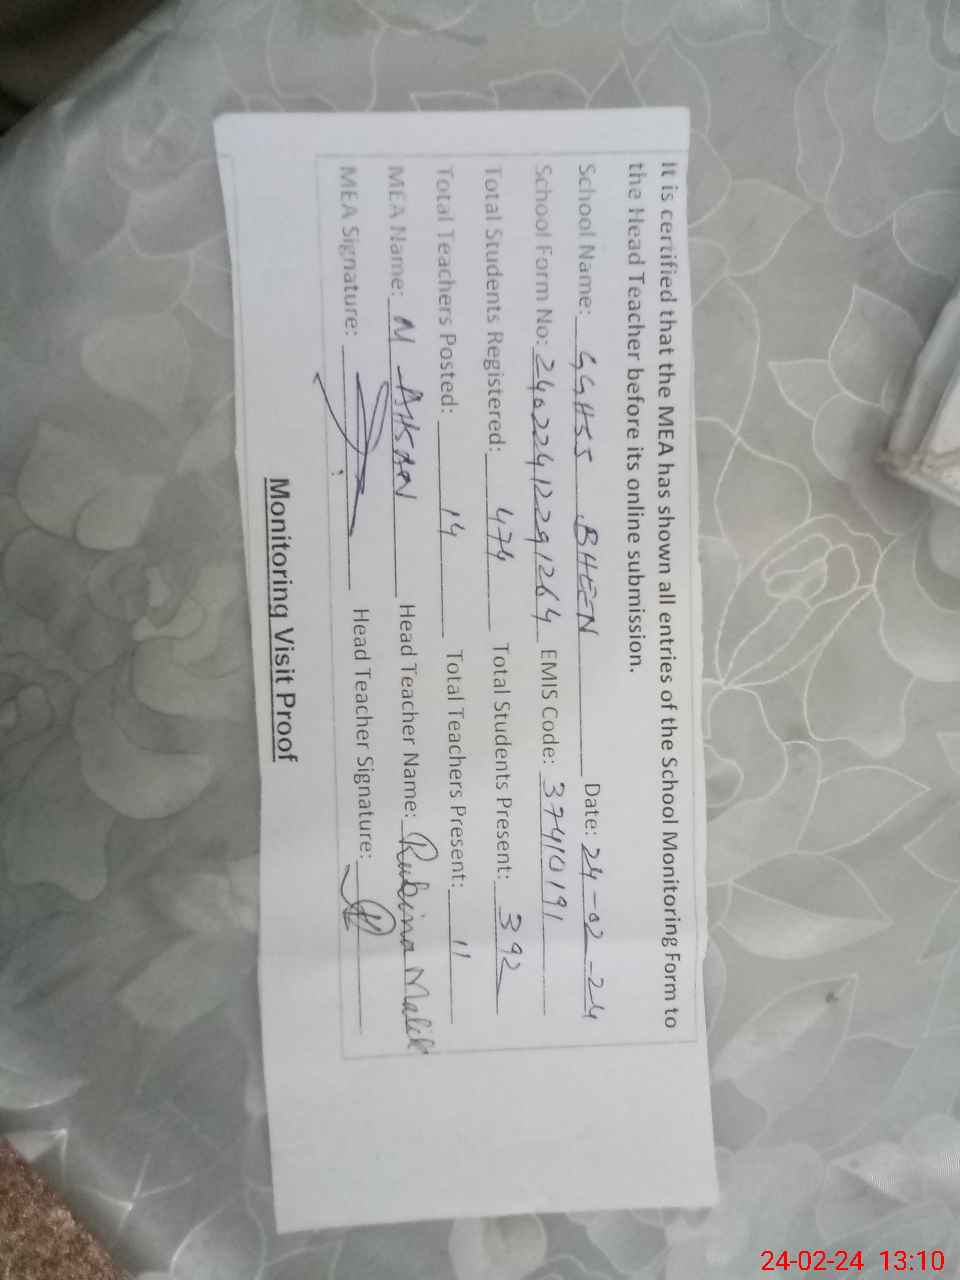 It is certified that the MEA has shown all entries of the School Monitoring Form to
the Head Teacher before its online submission.
School Name: GGHSS BHEEN Date: 24-02-24
School Form No: 24022412291264 EMIS Code: 37410191
Total Students Registered: 474 Total Students Present: 392
Total Teachers Posted: 14 Total Teachers Present: 11
MEA Name: M AHSAN Head Teacher Name: Rubina Malik
MEA Signature: Head Teacher Signature:
Monitoring Visit Proof
24-02-24 13:10